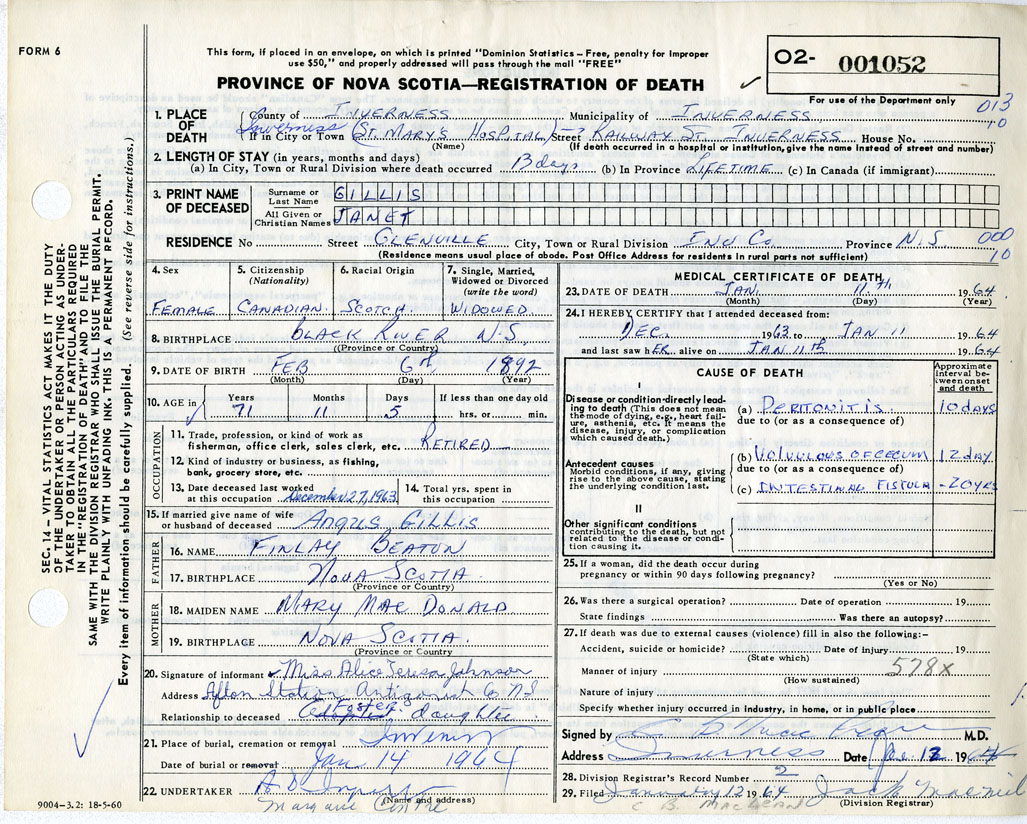 FORM 6
This form, if placed in an envelope, on which is printed "Dominion Statistics – Free, penalty for improper
use $50," and properly addressed will pass through the mail "FREE"
PROVINCE OF NOVA SCOTIA—REGISTRATION OF DEATH
O2- 001052
For use of the Department only
013
10
1. PLACE OF DEATH
County of INVERNESS Municipality of INVERNESS
Inverness
If in City or Town (ST. MARY'S HOSPITAL) Street RAILWAY ST. INVERNESS House No.
(Name) (If death occurred in a hospital or institution, give the name instead of street and number)
2. LENGTH OF STAY (in years, months and days)
(a) In City, Town or Rural Division where death occurred 13 days (b) In Province LIFETIME (c) In Canada (if immigrant)
3. PRINT NAME OF DECEASED
Surname or Last Name GILLIS
All Given or Christian Names JANET
RESIDENCE No Street GLENVILLE City, Town or Rural Division INV Co. Province N.S
000
10
(Residence means usual place of abode. Post Office Address for residents in rural parts not sufficient)
4. Sex
FEMALE
5. Citizenship
(Nationality)
CANADIAN
6. Racial Origin
SCOTCH
7. Single, Married, Widowed or Divorced
(write the word)
WIDOWED
8. BIRTHPLACE BLACK RIVER N.S.
(Province or Country)
9. DATE OF BIRTH FEB 6th 1892
(Month) (Day) (Year)
10. AGE in Years Months Days If less than one day old
71 11 5 hrs. or min.
OCCUPATION
11. Trade, profession, or kind of work as
fisherman, office clerk, sales clerk, etc. RETIRED
12. Kind of industry or business, as fishing,
bank, grocery store, etc.
13. Date deceased last worked
at this occupation December 27, 1963
14. Total yrs. spent in
this occupation
15. If married give name of wife
or husband of deceased ANGUS GILLIS
FATHER
16. NAME FINLAY BEATON
17. BIRTHPLACE NOVA SCOTIA
(Province or Country)
MOTHER
18. MAIDEN NAME MARY MAC DONALD
19. BIRTHPLACE NOVA SCOTIA.
(Province or Country)
20. Signature of informant Miss Alice Teresa Johnson
Address Afton Station Antigonish Co NS
Foster
Relationship to deceased Adopted daughter
21. Place of burial, cremation or removal
Date of burial or removal Jan 14 1964
22. UNDERTAKER
(Name and address)
Margaree Centre
9004-3.2: 18-5-60
MEDICAL CERTIFICATE OF DEATH
23. DATE OF DEATH JAN. 11th 1964
(Month) (Day) (Year)
24. I HEREBY CERTIFY that I attended deceased from:
DEC. 1963 to JAN 11 1964
and last saw hER alive on JAN 11th 1964
CAUSE OF DEATH
Approximate interval between onset and death
I
Disease or condition directly leading to death (This does not mean the mode of dying, e.g., heart failure, asthenia, etc. It means the disease, injury, or complication which caused death.)
(a) PERITONITIS. 10 DAYS
due to (or as a consequence of)
Antecedent causes
Morbid conditions, if any, giving rise to the above cause, stating the underlying condition last.
(b) VOLVULOUS OF CECUM 12 day
due to (or as a consequence of)
(c) INTESTINAL FISTULA - 20 YRS
II
Other significant conditions
contributing to the death, but not related to the disease or condition causing it.
25. If a woman, did the death occur during
pregnancy or within 90 days following pregnancy?
(Yes or No)
26. Was there a surgical operation? Date of operation 19
State findings Was there an autopsy?
27. If death was due to external causes (violence) fill in also the following:–
Accident, suicide or homicide? Date of injury 19
(State which)
Manner of injury 578x
(How sustained)
Nature of injury
Specify whether injury occurred in industry, in home, or in public place
Signed by M.D.
Address Inverness Date Jan 12 1964
28. Division Registrar's Record Number 2
29. Filed January 12 1964 Jack MacNeil
C. B. MACLEAN (Division Registrar)
SEC. 14 – VITAL STATISTICS ACT MAKES IT THE DUTY
OF THE UNDERTAKER OR PERSON ACTING AS UNDERTAKER
TO OBTAIN ALL THE PARTICULARS REQUIRED
IN THE "REGISTRATION OF DEATH" AND TO FILE THE
SAME WITH THE DIVISION REGISTRAR WHO SHALL ISSUE THE BURIAL PERMIT.
WRITE PLAINLY WITH UNFADING INK. THIS IS A PERMANENT RECORD.
Every item of information should be carefully supplied. (See reverse side for instructions.)